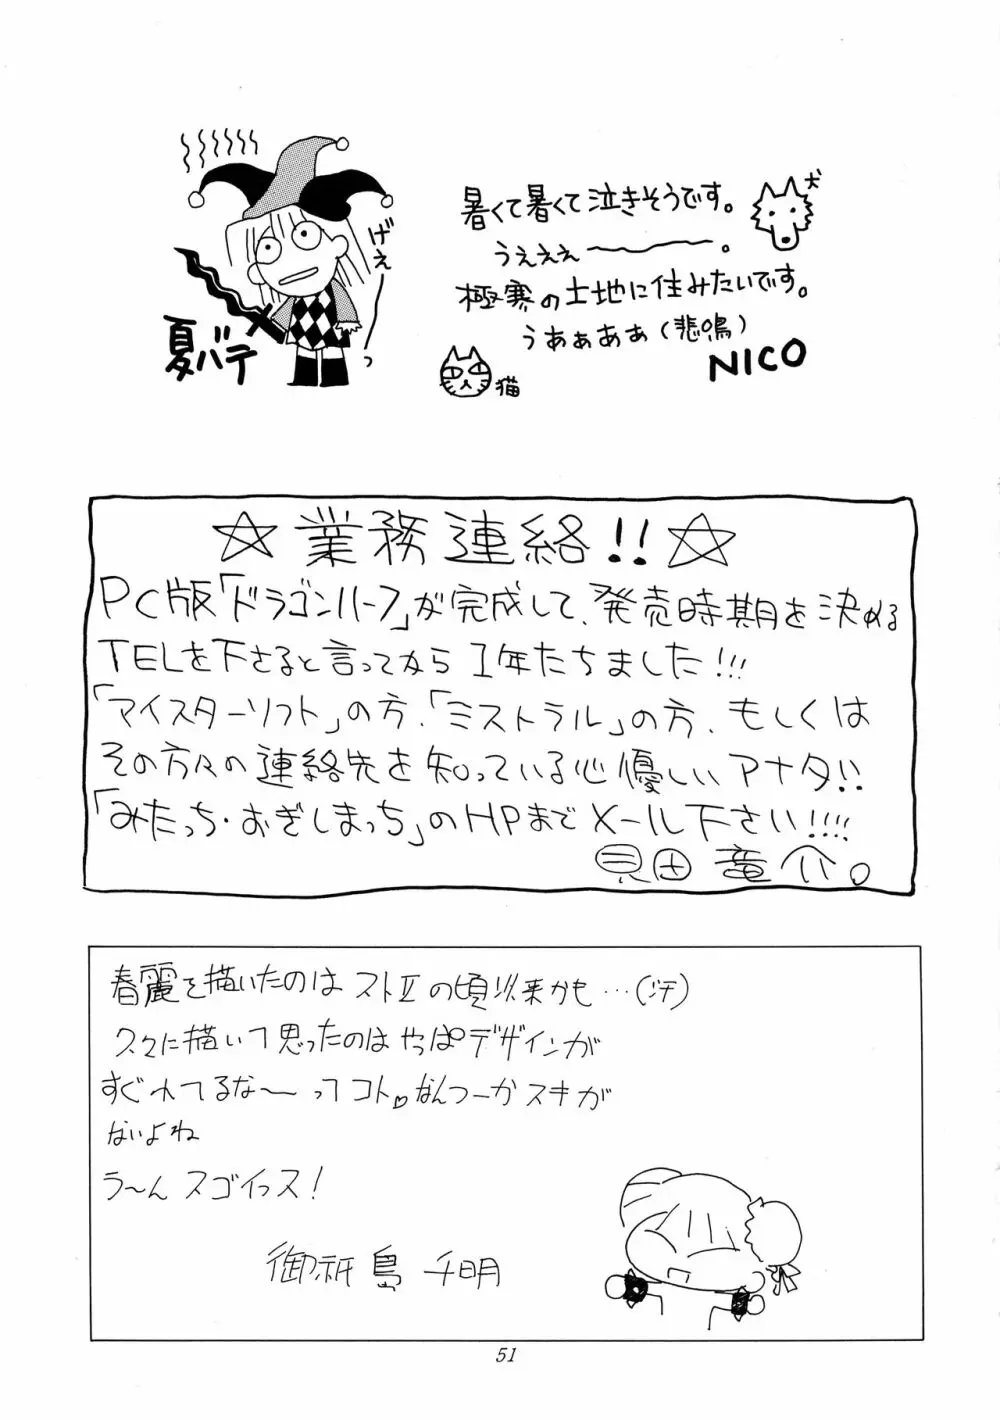 暑くて暑くて泣きそうです。
犬
うぇぇぇ〜〜。
極寒の土地に住みたいです。
うあぁぁぁ(悲鳴)
NICO
猫
げえーっ
夏バテ
☆業務連絡!!☆
PC版「ドラゴンハーフ」が完成して、発売時期を決める
TELを下さると言ってから1年たちました!!!
「マイスターソフト」の方、「ミストラル」の方、もしくは
その方々の連絡先を知っている心優しいアナタ!!
「みたっち・おぎしまっち」のHPまでメール下さい!!!!
見田竜介。
春麗を描いたのはストIIの頃以来かも…(汗)
久々に描いて思ったのはやっぱデザインが
すぐれてるな〜ってコト。なんつーかスキが
ないよね
う〜んスゴイっス!
御祇島千明
51